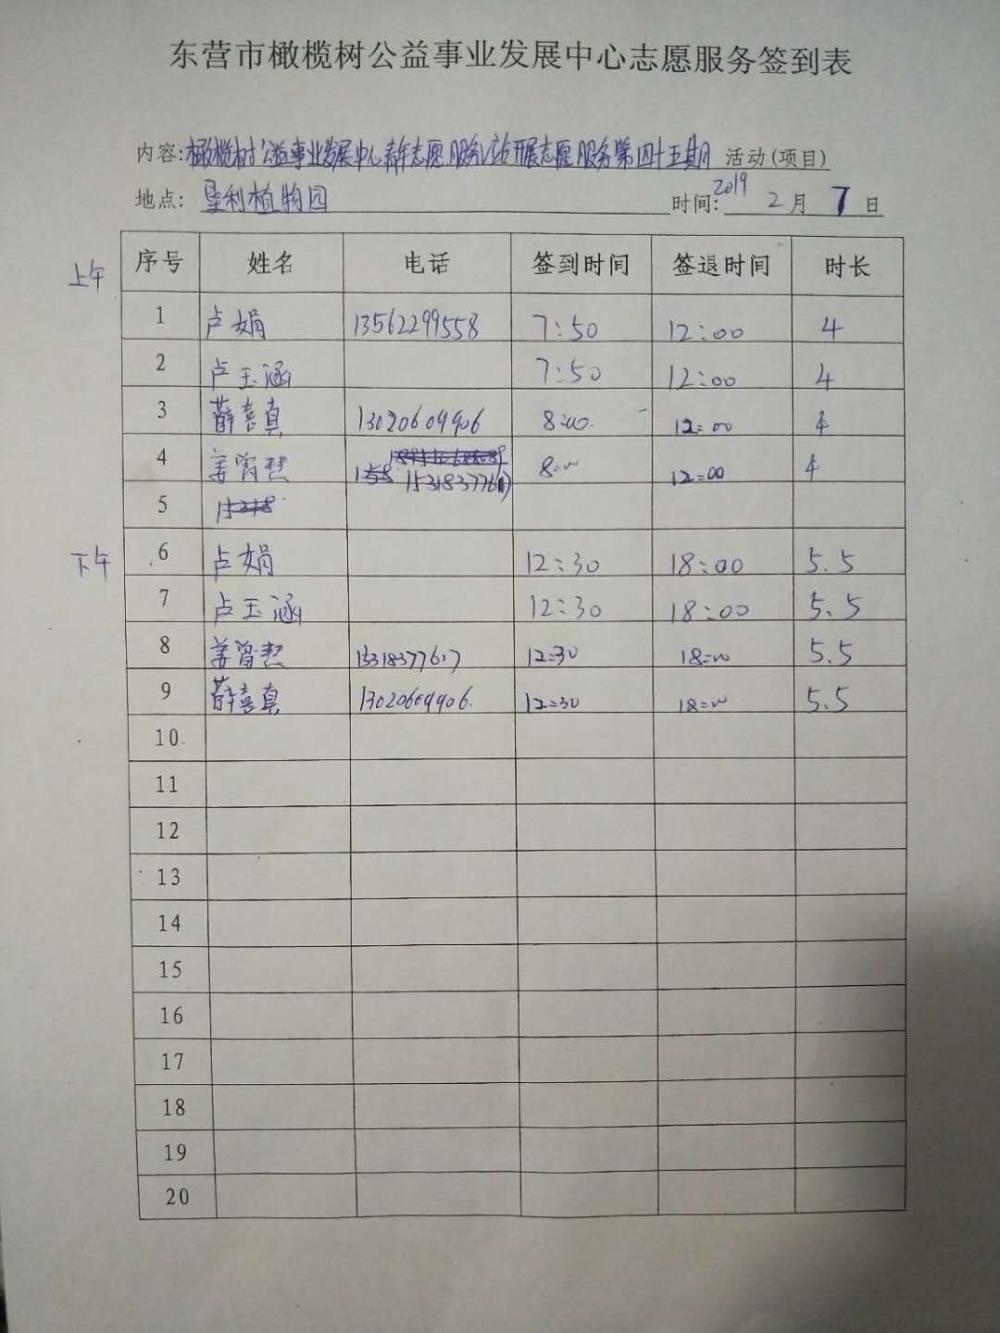 东营市橄榄树公益事业发展中心志愿服务签到表
内容:橄榄树公益事业发展中心青年志愿服务站开展志愿服务第四十五期 活动(项目)
地点: 垦利植物园 时间: 2019 2月 7日
序号 姓名 电话 签到时间 签退时间 时长
上午
1 卢娟 13562299558 7:50 12:00 4
2 卢玉涵 7:50 12:00 4
3 薛喜真 13020609906 8:00 12:00 4
4 姜 15318377617 8:00 12:00 4
5
下午
6 卢娟 12:30 18:00 5.5
7 卢玉涵 12:30 18:00 5.5
8 姜 15318377617 12:30 18:00 5.5
9 薛喜真 13020609906 12:30 18:00 5.5
10
11
12
13
14
15
16
17
18
19
20